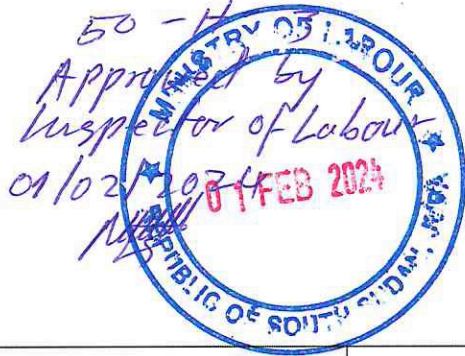 50 - H
Approved by
Inspector of Labour
01/02/2024
MINISTRY OF LABOUR
01 FEB 2024
REPUBLIC OF SOUTH SUDAN, JUBA